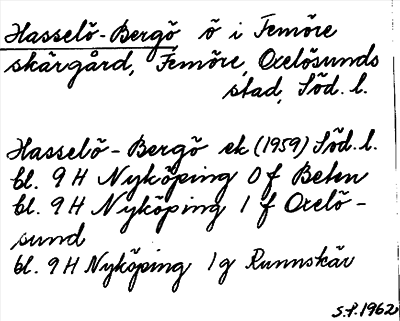 Hasselö-Bergö ö i Femöre
skärgård, Femöre, Oxelösunds
stad, Söd. l.
Hasselö-Bergö ek (1959) Söd. l.
bl. 9 H Nyköping 0 f Beten
bl. 9 H Nyköping 1 f Oxelö-
sund
bl. 9 H Nyköping 1 g Runnskär
S.P. 1962